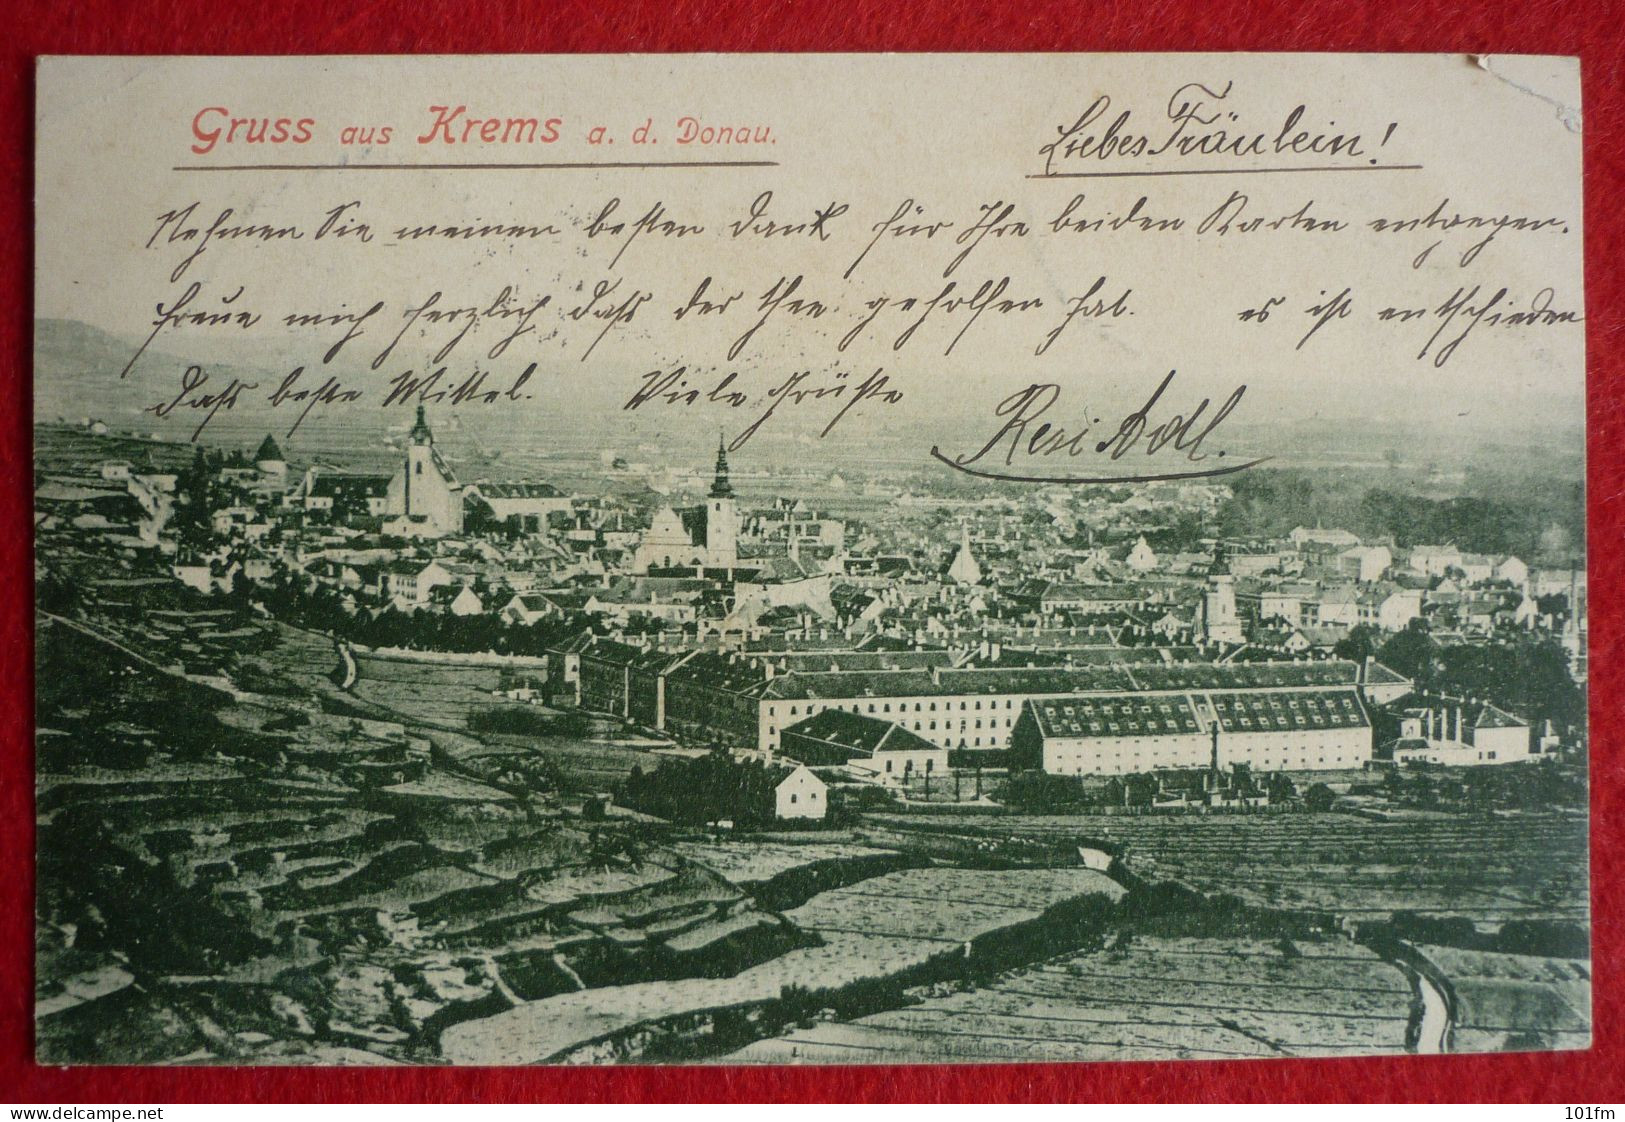 Gruss aus Krems a. d. Donau.
Liebes Fräulein!
Nehmen Sie meinen besten Dank für Ihre beiden Karten entgegen.
freue mich herzlich daß der Thee geholfen hat. es ist entschieden
daß beste Mittel. Viele Grüße
Resi Adl.
101fm